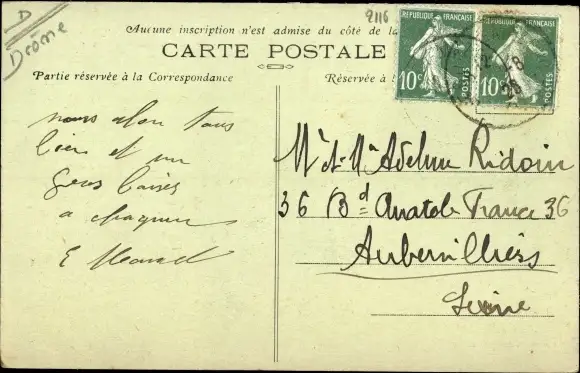 D
Drôme
9116
Aucune inscription n'est admise du côté de la
CARTE POSTALE
Partie réservée à la Correspondance
Réservée à
RÉPUBLIQUE FRANÇAISE
10c
POSTES
RÉPUBLIQUE FRANÇAISE
10c
POSTES
nous alon tous
bien et un
gros baiser
a chaqun
E
Mr et Me Adelin Ridoin
36 Bd Anatole France 36
Aubervilliers
Seine